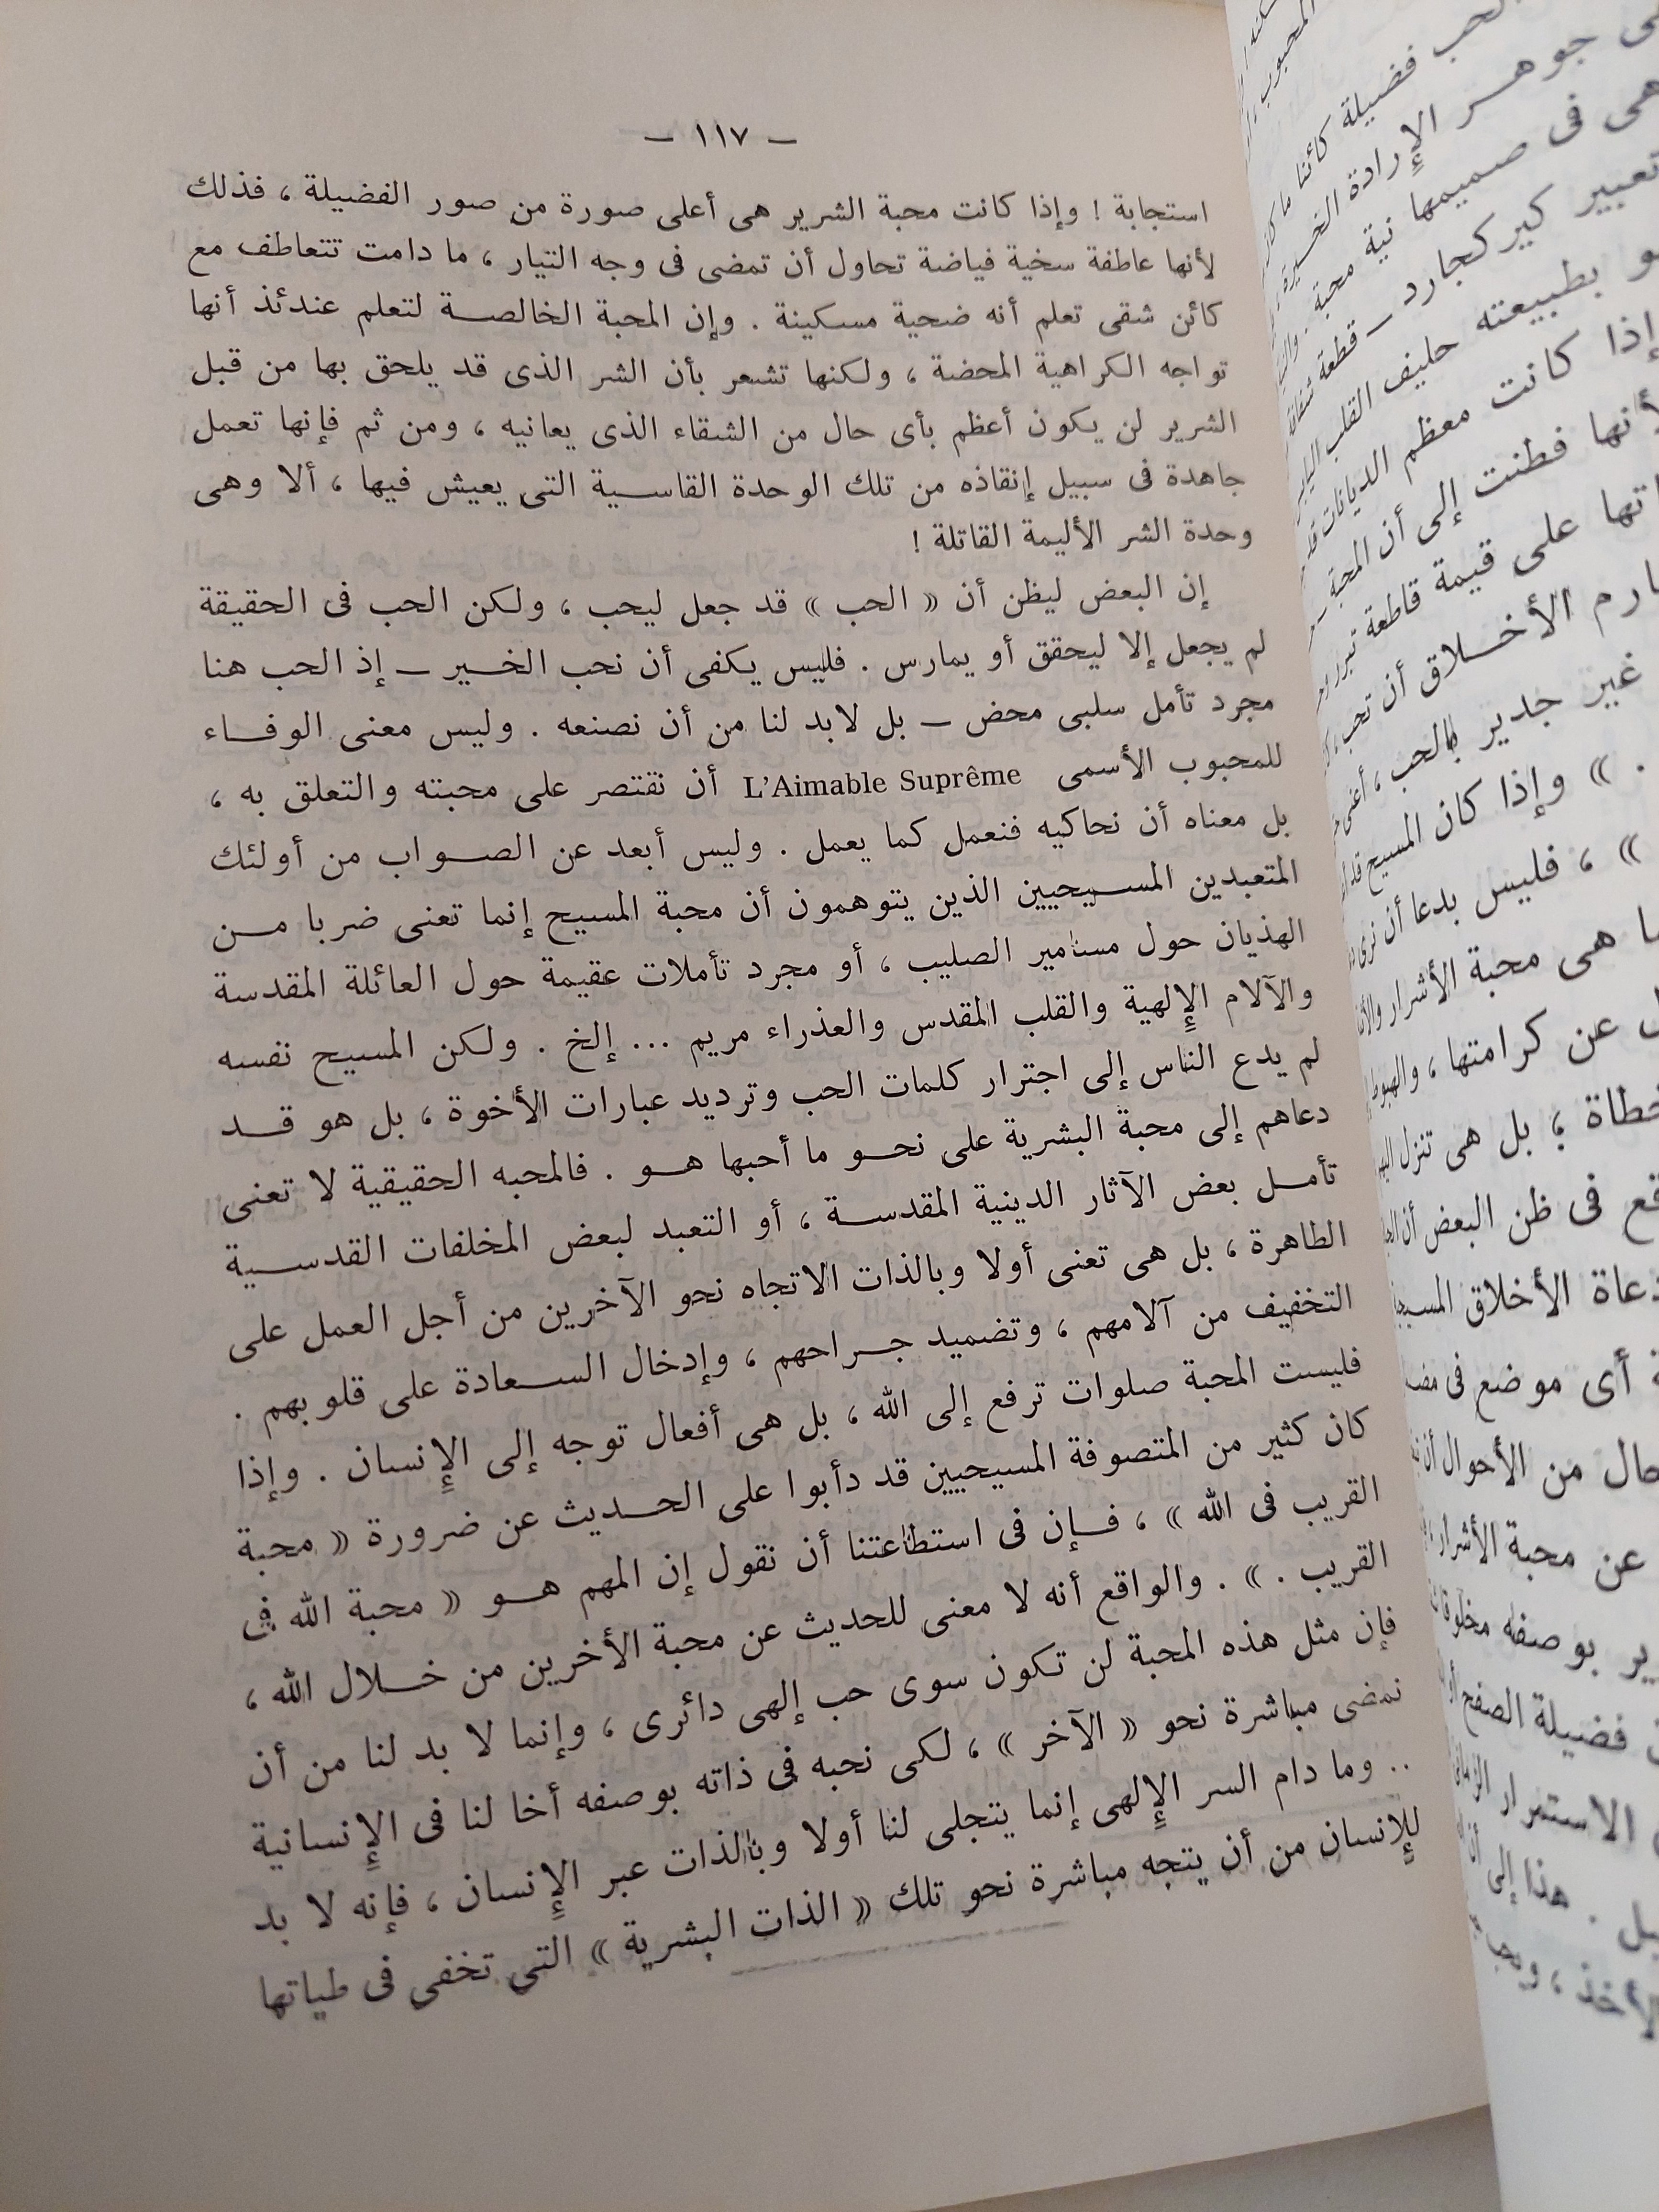 — ١١٧ —
استجابة ! وإذا كانت محبة الشرير هى أعلى صورة من صور الفضيلة ، فذلك
لأنها عاطفة سخية فياضة تحاول أن تمضى فى وجه التيار ، ما دامت تتعاطف مع
كائن شقى تعلم أنه ضحية مسكينة . وإن المحبة الخالصة لتعلم عندئذ أنها
تواجه الكراهية المحضة ، ولكنها تشعر بأن الشر الذى قد يلحق بها من قبل
الشرير لن يكون أعظم بأى حال من الشقاء الذى يعانيه ، ومن ثم فإنها تعمل
جاهدة فى سبيل إنقاذه من تلك الوحدة القاسية التى يعيش فيها ، ألا وهى
وحدة الشر الأليمة القاتلة !
إن البعض ليظن أن « الحب » قد جعل ليحب ، ولكن الحب فى الحقيقة
لم يجعل إلا ليحقق أو يمارس . فليس يكفى أن نحب الخير — إذ الحب هنا
مجرد تأمل سلبى محض — بل لابد لنا من أن نصنعه . وليس معنى الوفاء
للمحبوب الأسمى L'Aimable Suprême أن نقتصر على محبته والتعلق به ،
بل معناه أن نحاكيه فنعمل كما يعمل . وليس أبعد عن الصواب من أولئك
المتعبدين المسيحيين الذين يتوهمون أن محبة المسيح إنما تعنى ضربا من
الهذيان حول مسامير الصليب ، أو مجرد تأملات عقيمة حول العائلة المقدسة
والآلام الإلهية والقلب المقدس والعذراء مريم ... إلخ . ولكن المسيح نفسه
لم يدع الناس إلى اجترار كلمات الحب وترديد عبارات الأخوة ، بل هو قد
دعاهم إلى محبة البشرية على نحو ما أحبها هو . فالمحبه الحقيقية لا تعنى
تأمل بعض الآثار الدينية المقدسة ، أو التعبد لبعض المخلفات القدسية
الطاهرة ، بل هى تعنى أولا وبالذات الاتجاه نحو الآخرين من أجل العمل على
التخفيف من آلامهم ، وتضميد جراحهم ، وإدخال السعادة على قلوبهم .
فليست المحبة صلوات ترفع إلى الله ، بل هى أفعال توجه إلى الإنسان . وإذا
كان كثير من المتصوفة المسيحيين قد دأبوا على الحديث عن ضرورة « محبة
القريب فى الله » ، فإن فى استطاعتنا أن نقول إن المهم هو « محبة الله فى
القريب . » . والواقع أنه لا معنى للحديث عن محبة الأخرين من خلال الله ،
فإن مثل هذه المحبة لن تكون سوى حب إلهى دائرى ، وإنما لا بد لنا من أن
نمضى مباشرة نحو « الآخر » ، لكى نحبه فى ذاته بوصفه أخا لنا فى الإنسانية
.. وما دام السر الإلهى إنما يتجلى لنا أولا وبالذات عبر الإنسان ، فإنه لا بد
للإنسان من أن يتجه مباشرة نحو تلك « الذات البشرية » التى تخفى فى طياتها
الحب فضيلة كائنا ما
جوهر الإرادة الخيرة
هى فى صميمها نية محبة
تعبير كيركجارد — قطعة
بطبيعته حليف القلب
إذا كانت معظم الديانات
لأنها فطنت إلى أن المحبة
على قيمة قاطعة تبرر
الأخلاق أن تحب
غير جدير بالحب ، أعنى
. » وإذا كان المسيح
» ، فليس بدعا أن نرى
هى محبة الأشرار
عن كرامتها ،
بل هى تنزل
فى ظن البعض أن
دعاة الأخلاق
أى موضع فى
حال من الأحوال أن
عن محبة الأشرار
بوصفه
فضيلة الصفح
الاستمرار
. هذا إلى أن